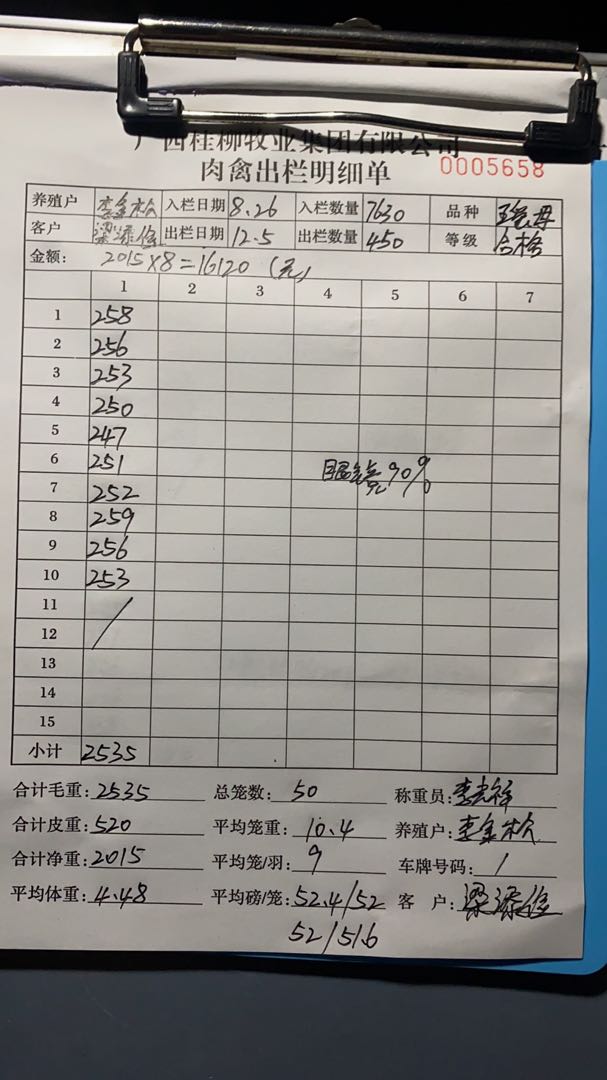 广西桂柳牧业集团有限公司
肉禽出栏明细单 0005658
养殖户 李金 入栏日期 8.26 入栏数量 7630 品种
客户 梁添俊 出栏日期 12.5 出栏数量 450 等级 合格
金额: 2015×8=16120 (元)
1 2 3 4 5 6 7
1 258
2 256
3 253
4 250
5 247
6 251
眼 90%
7 252
8 259
9 256
10 253
11 /
12
13
14
15
小计 2535
合计毛重: 2535 总笼数: 50 称重员: 李光祥
合计皮重: 520 平均笼重: 10.4 养殖户: 李金
合计净重: 2015 平均笼/羽: 9 车牌号码: /
平均体重: 4.48 平均磅/笼: 52.4/52 客 户: 梁添俊
52/51.6